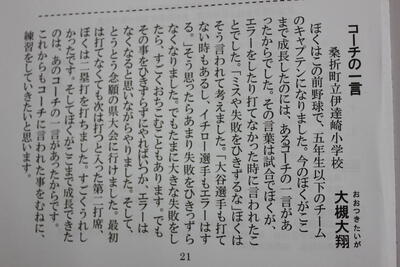 コーチの一言
桑折町立伊達崎小学校
大槻大翔
おおつきたいが
ぼくはこの前野球で、五年生以下のチーム
のキャプテンになりました。今のぼくがここ
まで成長したのには、あるコーチの一言があ
ったからでした。その言葉は試合でぼくが、
エラーをしたり打てなかった時に言われたこ
とでした。「ミスや失敗をひきずるな」ぼくは
そう言われて考えました。「大谷選手も打て
ない時もあるし、イチロー選手もエラーはす
る。」そう思ったらあまり失敗をひきっずら
なくなりました。でもたまに大きな失敗をし
たら、すごくおちこむこともあります。でも
その事をひきずらずにやれば、いつか、エラーは
なくなると思いながらやりました。そして、
とうとう念願の県大会に行けました。最初
は打てなくても次は打つと入った第二打席、
ぼくは二塁打を打ちました。すごくうれし
かったです。そしてぼくがここまで成長できた
のは、あのコーチの一言があったからです。
これからもコーチに言われた事をむねに、
練習をしていきたいと思います。
21